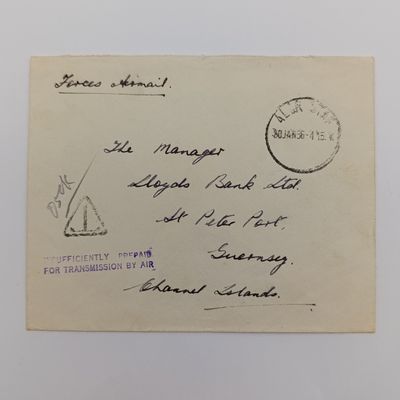 Forces Airmail.
ALOR STAR
30 JAN 56-4 15
The Manager
Lloyds Bank Ltd.
St Peter Port,
Guernsey.
Channel Islands.
T
INSUFFICIENTLY PREPAID
FOR TRANSMISSION BY AIR